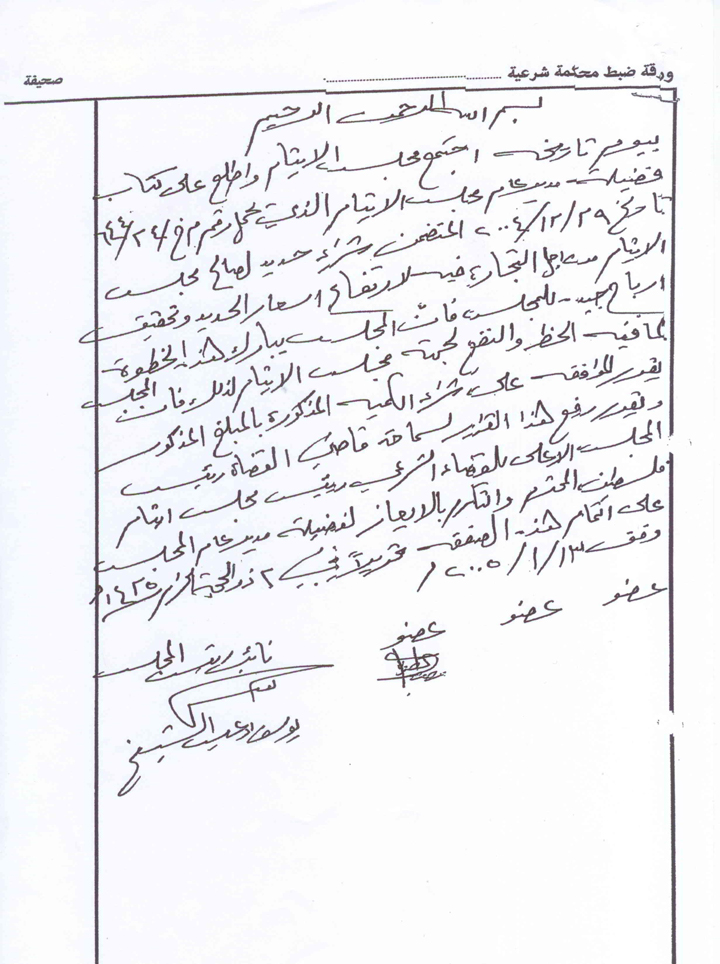 ورقة ضبط محكمة شرعية
صحيفة
بسم الله الرحمن الرحيم
بيوم تاريخه اجتمع مجلس الايتام واطلع على كتاب
فضيلة مدير عام مجلس الايتام الذي يحمل رقم م خ /٢٤/٦٤٤
تاريخ ٢٠٠٤/١٢/٢٩ المتضمن شراء حديد لصالح مجلس
الايتام من اجل التجارة فيه لارتفاع اسعار الحديد وتحقيق
ارباح جيدة للمجلس فان المجلس يبارك هذه الخطوة
لما فيه الحظ والنفع لجهة مجلس الايتام لذلك فان المجلس
يقرر الموافقة على شراء الكمية المذكورة بالمبلغ المذكور
ونقرر رفع هذا القرار لسماحة قاضي القضاة رئيس
المجلس الاعلى للقضاء الشرعي رئيس مجلس ايتام
فلسطين المحترم والتكرم بالايعاز لفضيلة مدير عام المجلس
على اتمام هذه الصفقة تحريراً في ٢ ذو الحجة ١٤٢٥
وفق ٢٠٠٥/١/١٣م
عضو عضو عضو
نائب رئيس المجلس
يوسف ادعيس الشيخ